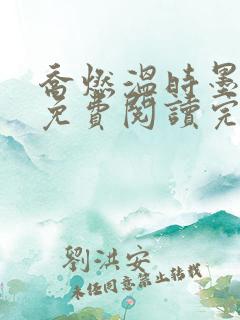 喬燃溫時墨
免費閱讀完
劉洪安
未经同意禁止转载